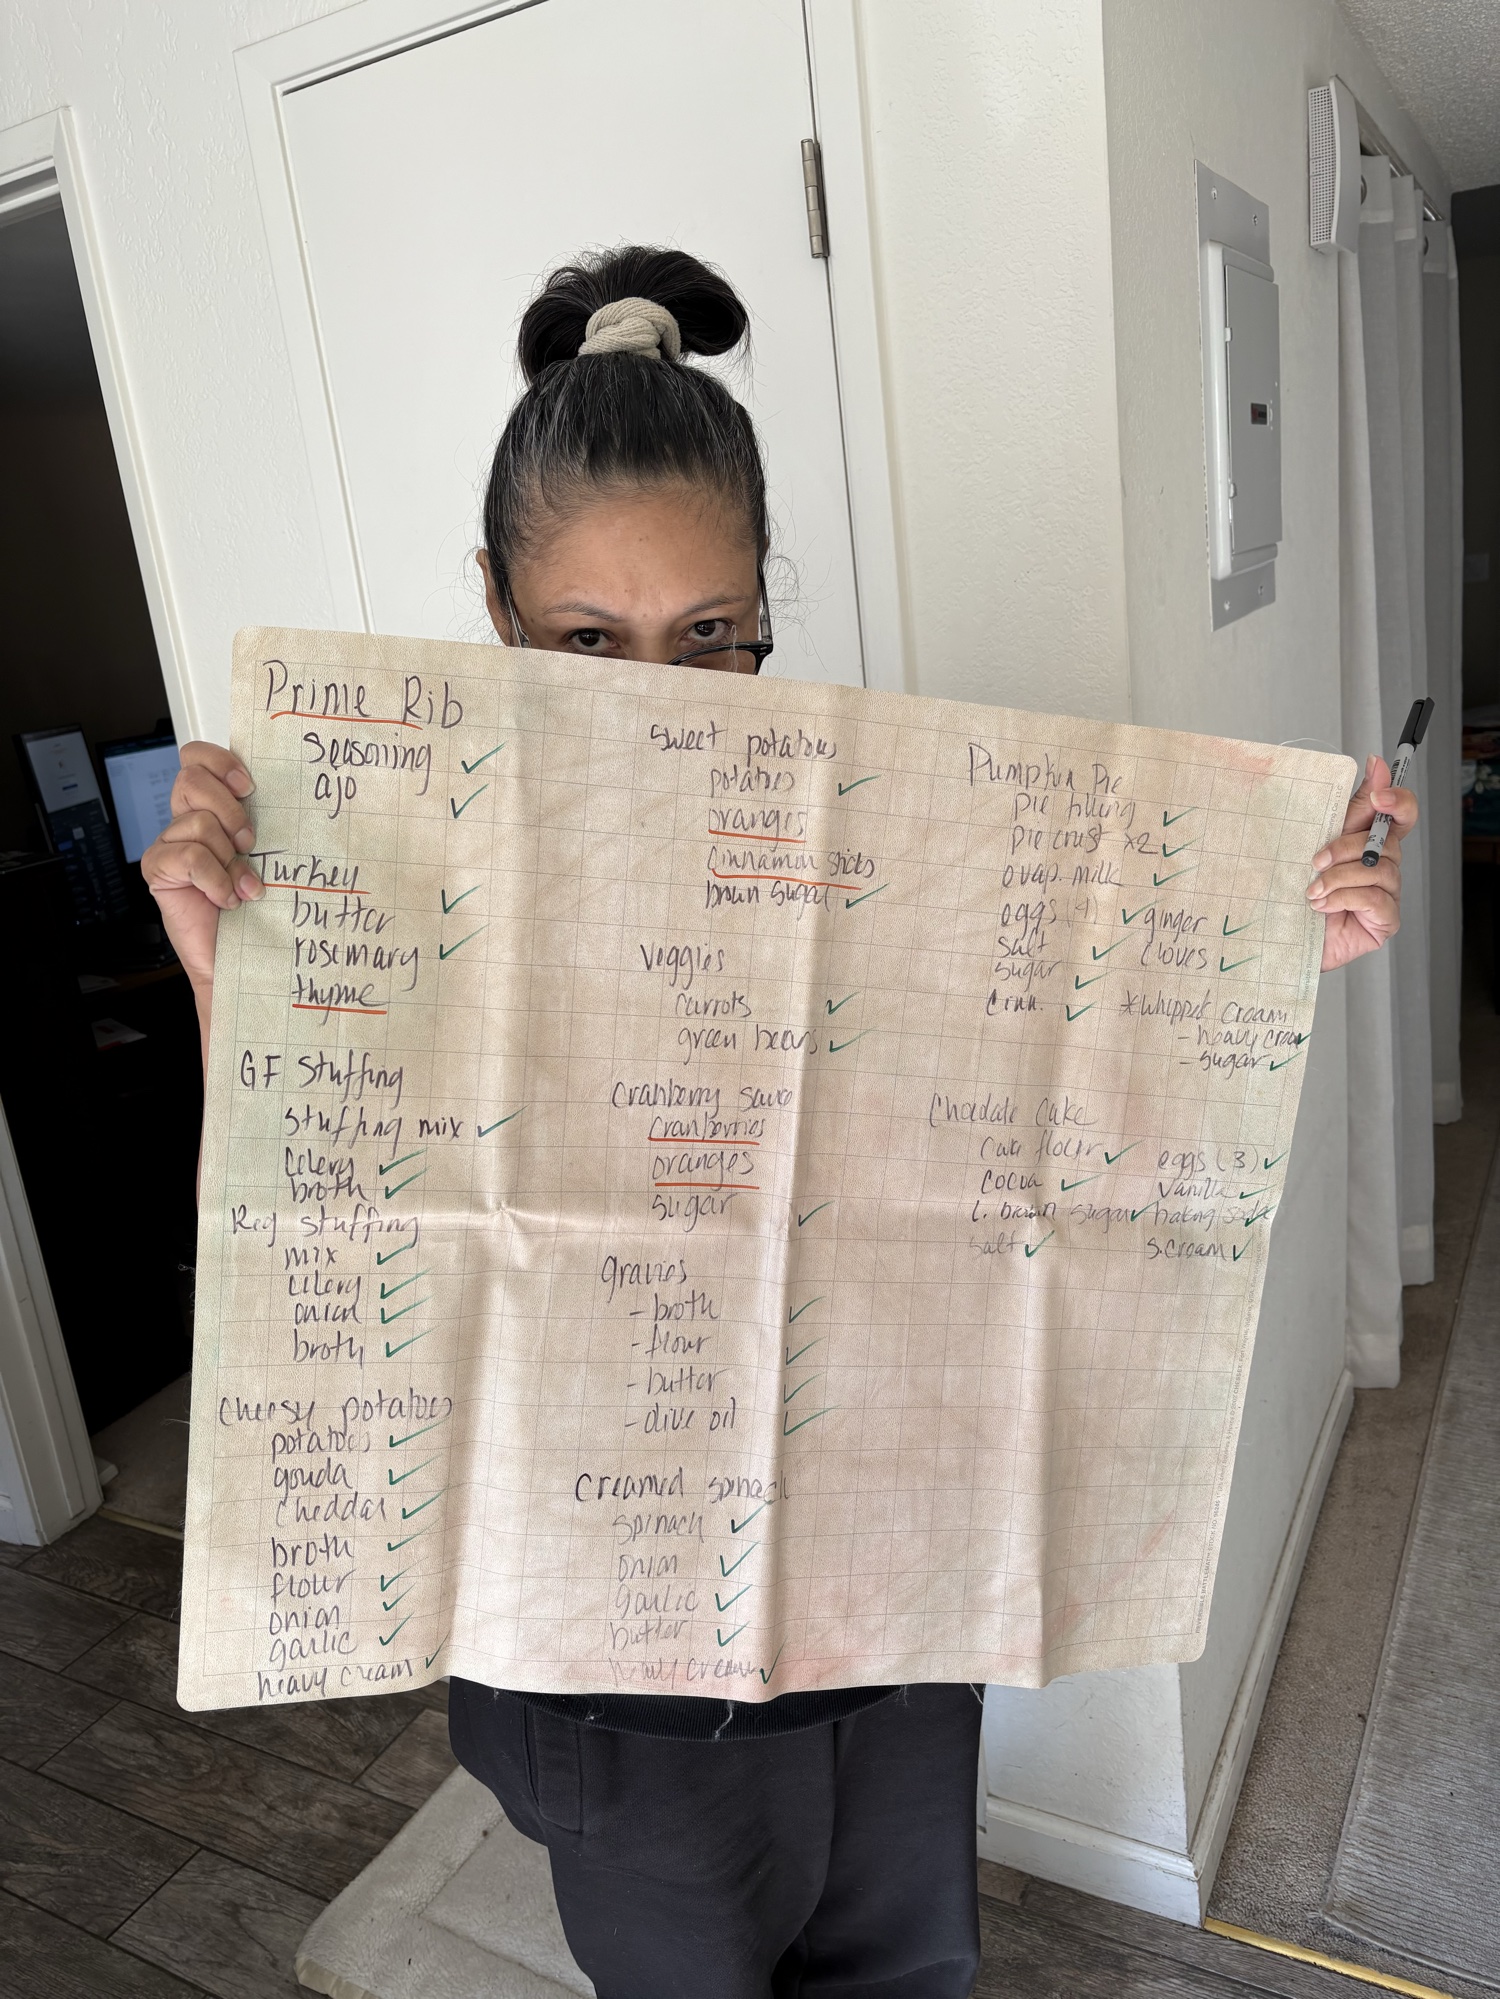 Prime Rib
Seasoning ✓
ajo ✓
Turkey
butter ✓
rosemary ✓
thyme
GF Stuffing
stuffing mix ✓
celery ✓
broth ✓
Reg stuffing
mix ✓
celery ✓
onion ✓
broth ✓
Cheesy potatoes
potatoes ✓
gouda ✓
cheddar ✓
broth ✓
flour ✓
onion ✓
garlic ✓
heavy cream ✓
Sweet potatoes
potatoes ✓
oranges
cinnamon sticks
brown sugar ✓
Veggies
carrots ✓
green beans ✓
Cranberry sauce
cranberries
oranges
sugar ✓
gravies
- broth ✓
- flour ✓
- butter ✓
- olive oil ✓
Creamed spinach
spinach ✓
onion ✓
garlic ✓
butter ✓
heavy cream ✓
Pumpkin Pie
pie filling ✓
pie crust x2 ✓
evap. milk ✓
eggs (4) ✓ ginger ✓
salt ✓ cloves ✓
sugar ✓
cinn. ✓
*whipped cream
- heavy cream ✓
- sugar ✓
Chocolate Cake
cake flour ✓ eggs (3) ✓
cocoa ✓ vanilla ✓
l. brown sugar ✓ baking soda ✓
salt ✓ s. cream ✓